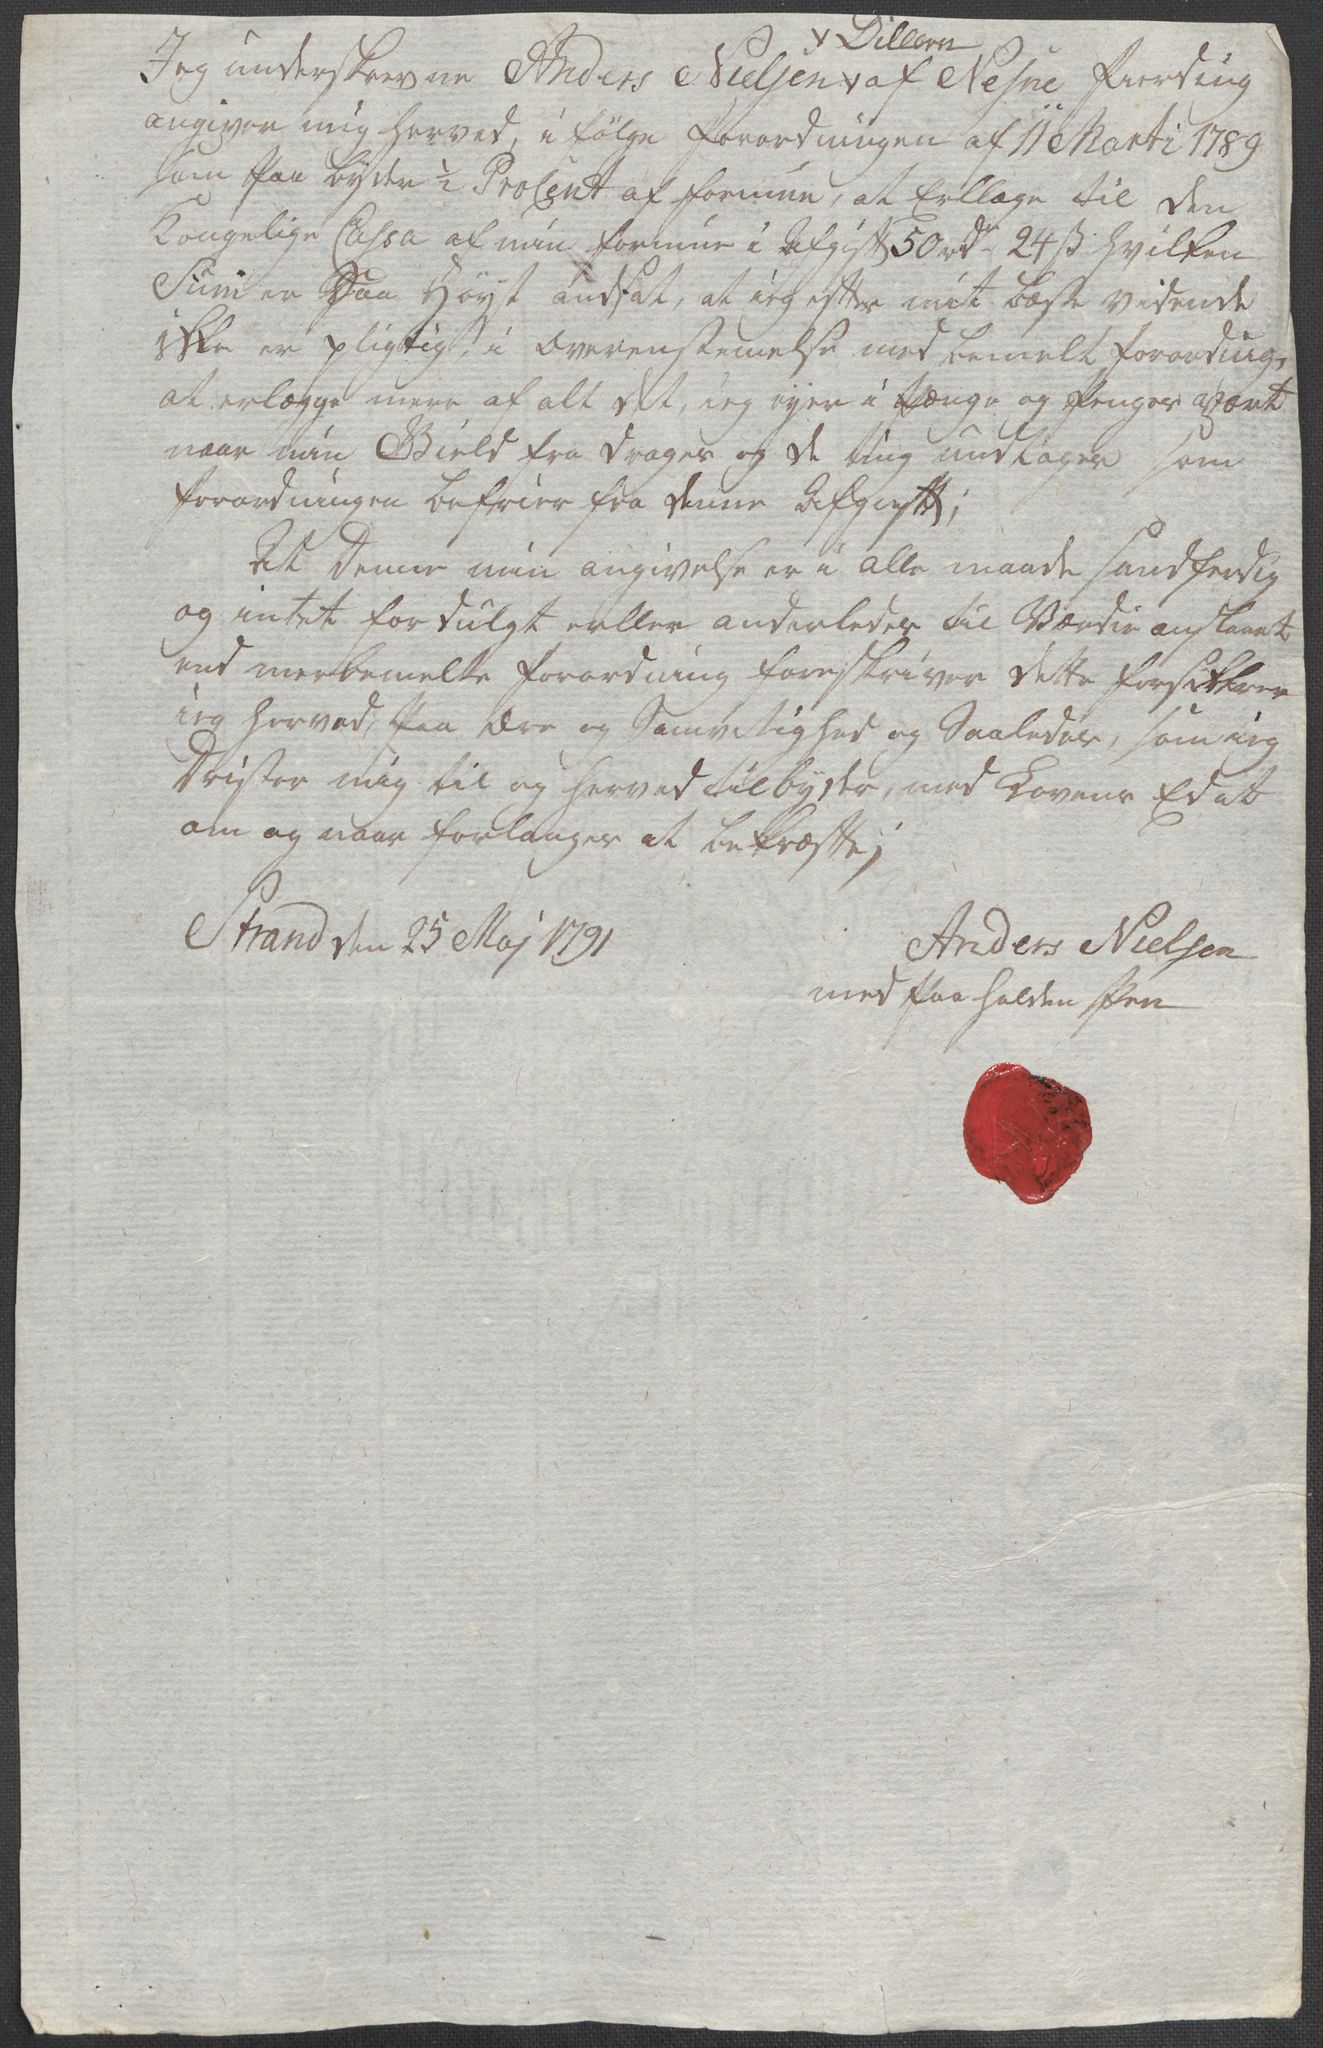 x Dillern
Jeg underskrevne Anders Nielsen x af Nesne fierding
angiver mig herved, i følge forordningen af 11 Marti 1789
som paa byder ½ ProCent af formue, at Erllage til den
Kongelige Cassa af min formue i Afgift 50 rdr 24 ß hvilken
Sum er Saa Høyst andsat, at ieg efter mit bæste vidende
ikke er pligtig, i overenstemelse med bemelt forording,
at erlægge mere af alt det, ieg eyer i penge og penges vært
naar min Gield fra drages og de ting undtages som
forordningen befrier fra denne Afgift;
At Denne min angivelse er i alle maade sandferdig
og intet fordulgt erller anderledes til Værdie anslaaet
end merbemelte forordning foreskriver dette forsikrer
ieg herved, paa ære og Samvitighed og Saaledes, som ieg
Drister mig til og herved tilbyder, med Lovens Ed at
om og naar forlanges at bekræfte;
Strand den 25 Maj 1791
Anders Nielsen
med paa holden Pen